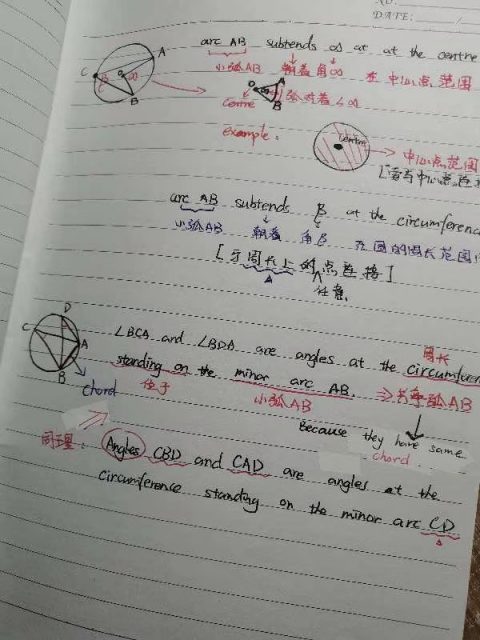 DATE:
arc AB subtends ∞ at at the centre
小弧AB 朝着角∞ 在 中心点 范围
Centre
弧对着∠∞
example.
centre
中心点范围
arc AB subtends β at the circumference
小弧AB 朝着 角β 在圆的周长范围
周长上的 点连接]
任意
∠BCA and ∠BDA are angles at the circumference
周长
standing on the minor arc AB. ⇒ 共享弧AB
位于 小弧AB
chord
Because they have same
chord.
同理: Angles CBD and CAD are angles at the
circumference standing on the minor arc CD